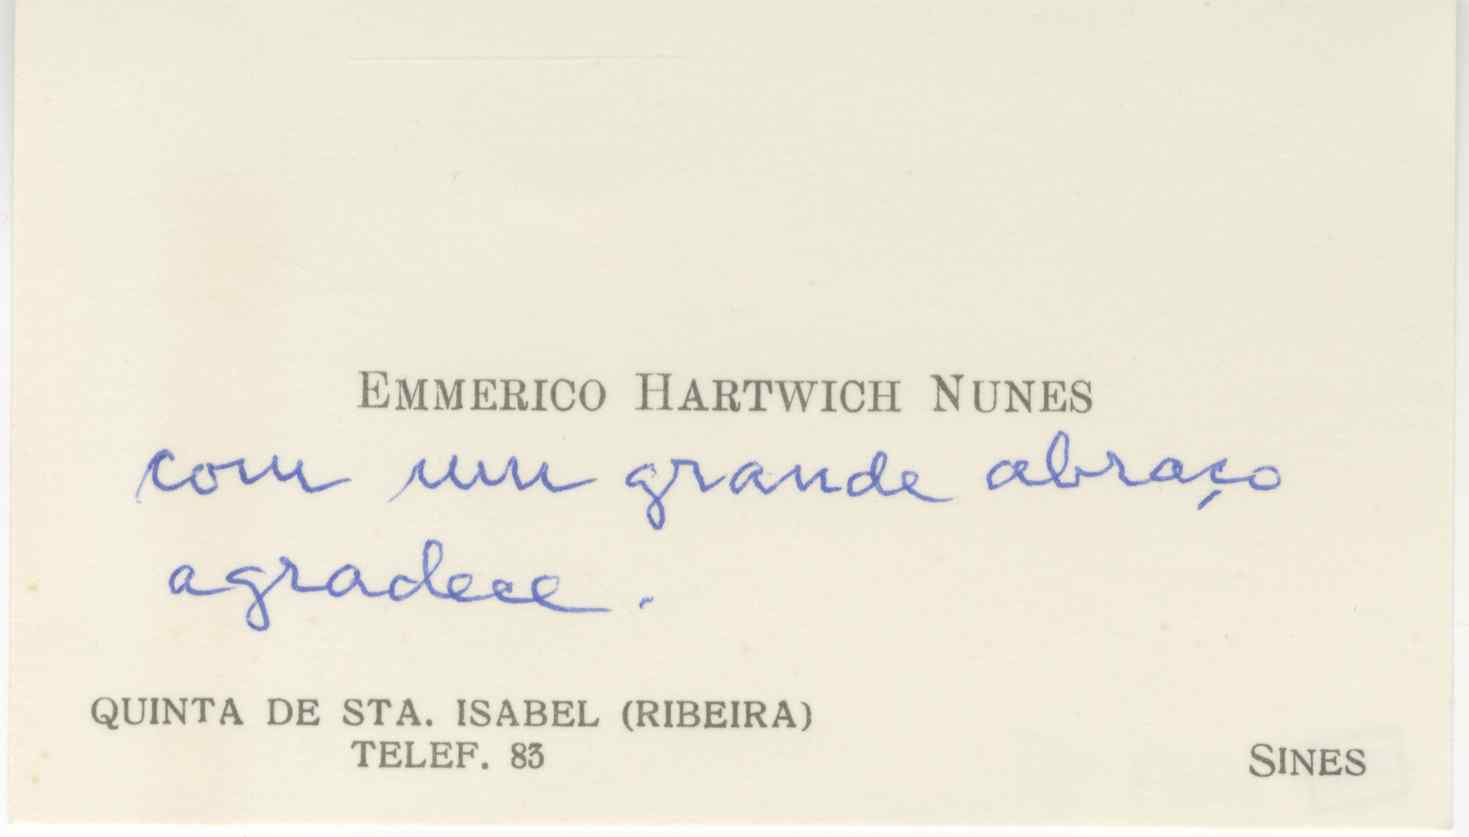 EMMERICO HARTWICH NUNES
com um grande abraço
agradece.
QUINTA DE STA. ISABEL (RIBEIRA)
TELEF. 83
SINES